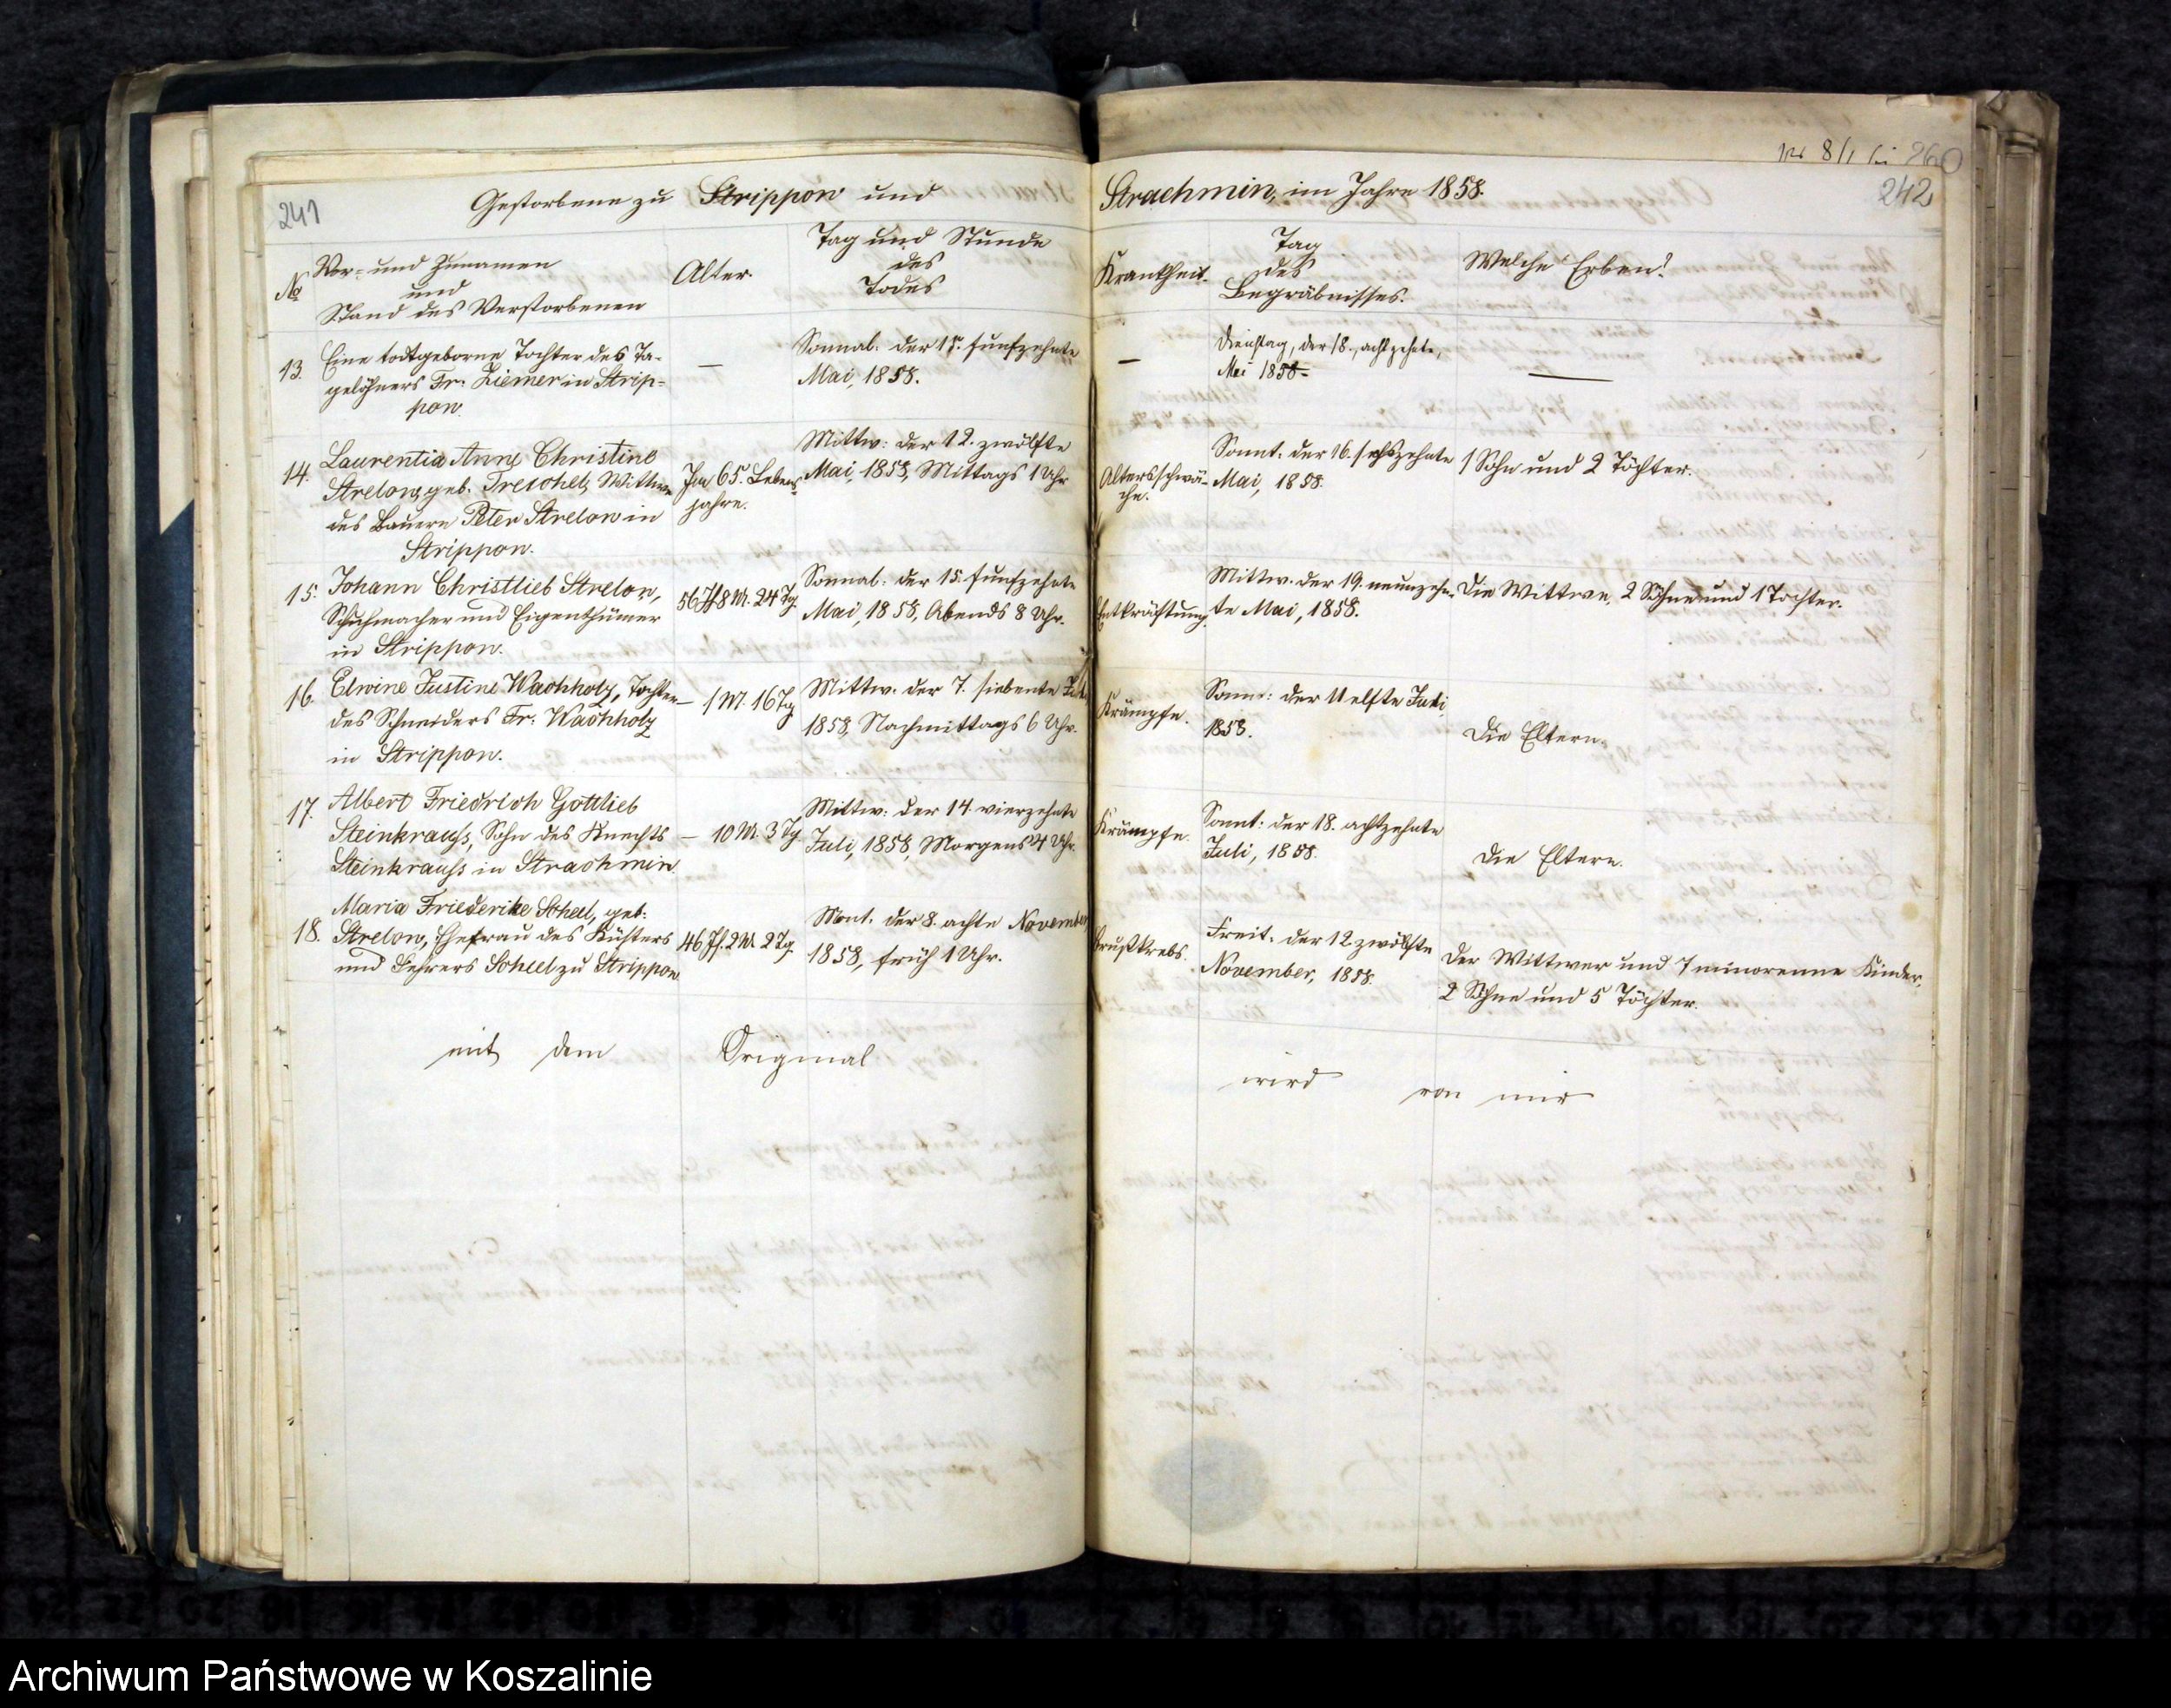 241
Gestorbene zu Strippow und
Strachmin, im Jahre 1858.
242
260
№
Vor- und Zunamen
und
Stand des Verstorbenen
Alter.
Tag und Stunde
des
Todes
Krankheit.
Tag
des
Begräbnisses.
Welche Erben?
13.
Eine todtgeborne Tochter des Ta-
gelöhners Fr: Ziemer in Strip-
pow.
—
Sonnab. der 15. funfzehnte
Mai, 1858.
—
Dienstag, der 18., achtzehnte,
Mai 1858.
—
14.
Laurentia Anne Christine
Strelow, geb. Treichel, Wittwe
des Bauern Peter Strelow in
Strippow.
Im 65. Lebens-
jahre.
Mittw: der 12. zwölfte
Mai, 1858, Mittags 1 Uhr
Altersschwä-
che.
Sonnt. der 16. sechszehnte
Mai, 1858.
1 Sohn und 2 Töchter.
15.
Johann Christlieb Strelow,
Schuhmacher und Eigenthümer
in Strippow.
56 J. 8 M. 24 Tg.
Sonnab. der 15. funfzehnte
Mai, 1858, Abends 8 Uhr.
Entkräftung.
Mittw. der 19. neunzehn-
te Mai, 1858.
Die Wittwe, 2 Söhne und 1 Tochter.
16.
Elwine Justine Wachholz, Tochter
des Schneiders Fr: Wachholz
in Strippow.
— 1 M. 16 Tg
Mittw. der 7. siebente Juli
1858, Nachmittags 6 Uhr.
Krämpfe.
Sonnt: der 11 elfte Juli
1858.
Die Eltern.
17.
Albert Friedrich Gottlieb
Steinkrauss, Sohn des Knechts
Steinkrauss in Strachmin
— 10 M. 3 Tg.
Mittw: der 14. vierzehnte
Juli, 1858, Morgens 4 Uhr.
Krämpfe.
Sonnt: der 18. achtzehnte
Juli, 1858.
Die Eltern.
18.
Maria Friederike Scheel, geb:
Strelow, Ehefrau des Küsters
und Lehrers Scheel zu Strippow
46 J. 2 M. 2 Tg.
Mont. der 8. achte November
1858, früh 1 Uhr.
Brustkrebs.
Freit. der 12. zwölfte
November, 1858.
Der Wittwer und 7 minorenne Kinder,
2 Söhne und 5 Töchter.
mit dem Original
wird von mir
Archiwum Państwowe w Koszalinie